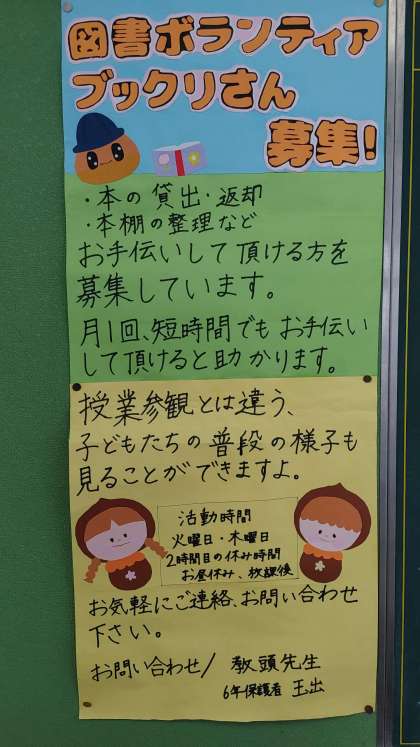 図書ボランティア
ブックリさん
募集!
・本の貸出・返却
・本棚の整理など
お手伝いして頂ける方を
募集しています。
月1回、短時間でもお手伝い
して頂けると助かります。
授業参観とは違う、
子どもたちの普段の様子も
見ることができますよ。
活動時間
火曜日・木曜日
2時間目の休み時間
お昼休み、放課後
お気軽にご連絡、お問い合わせ
下さい。
お問い合わせ/ 教頭先生
6年保護者 玉出